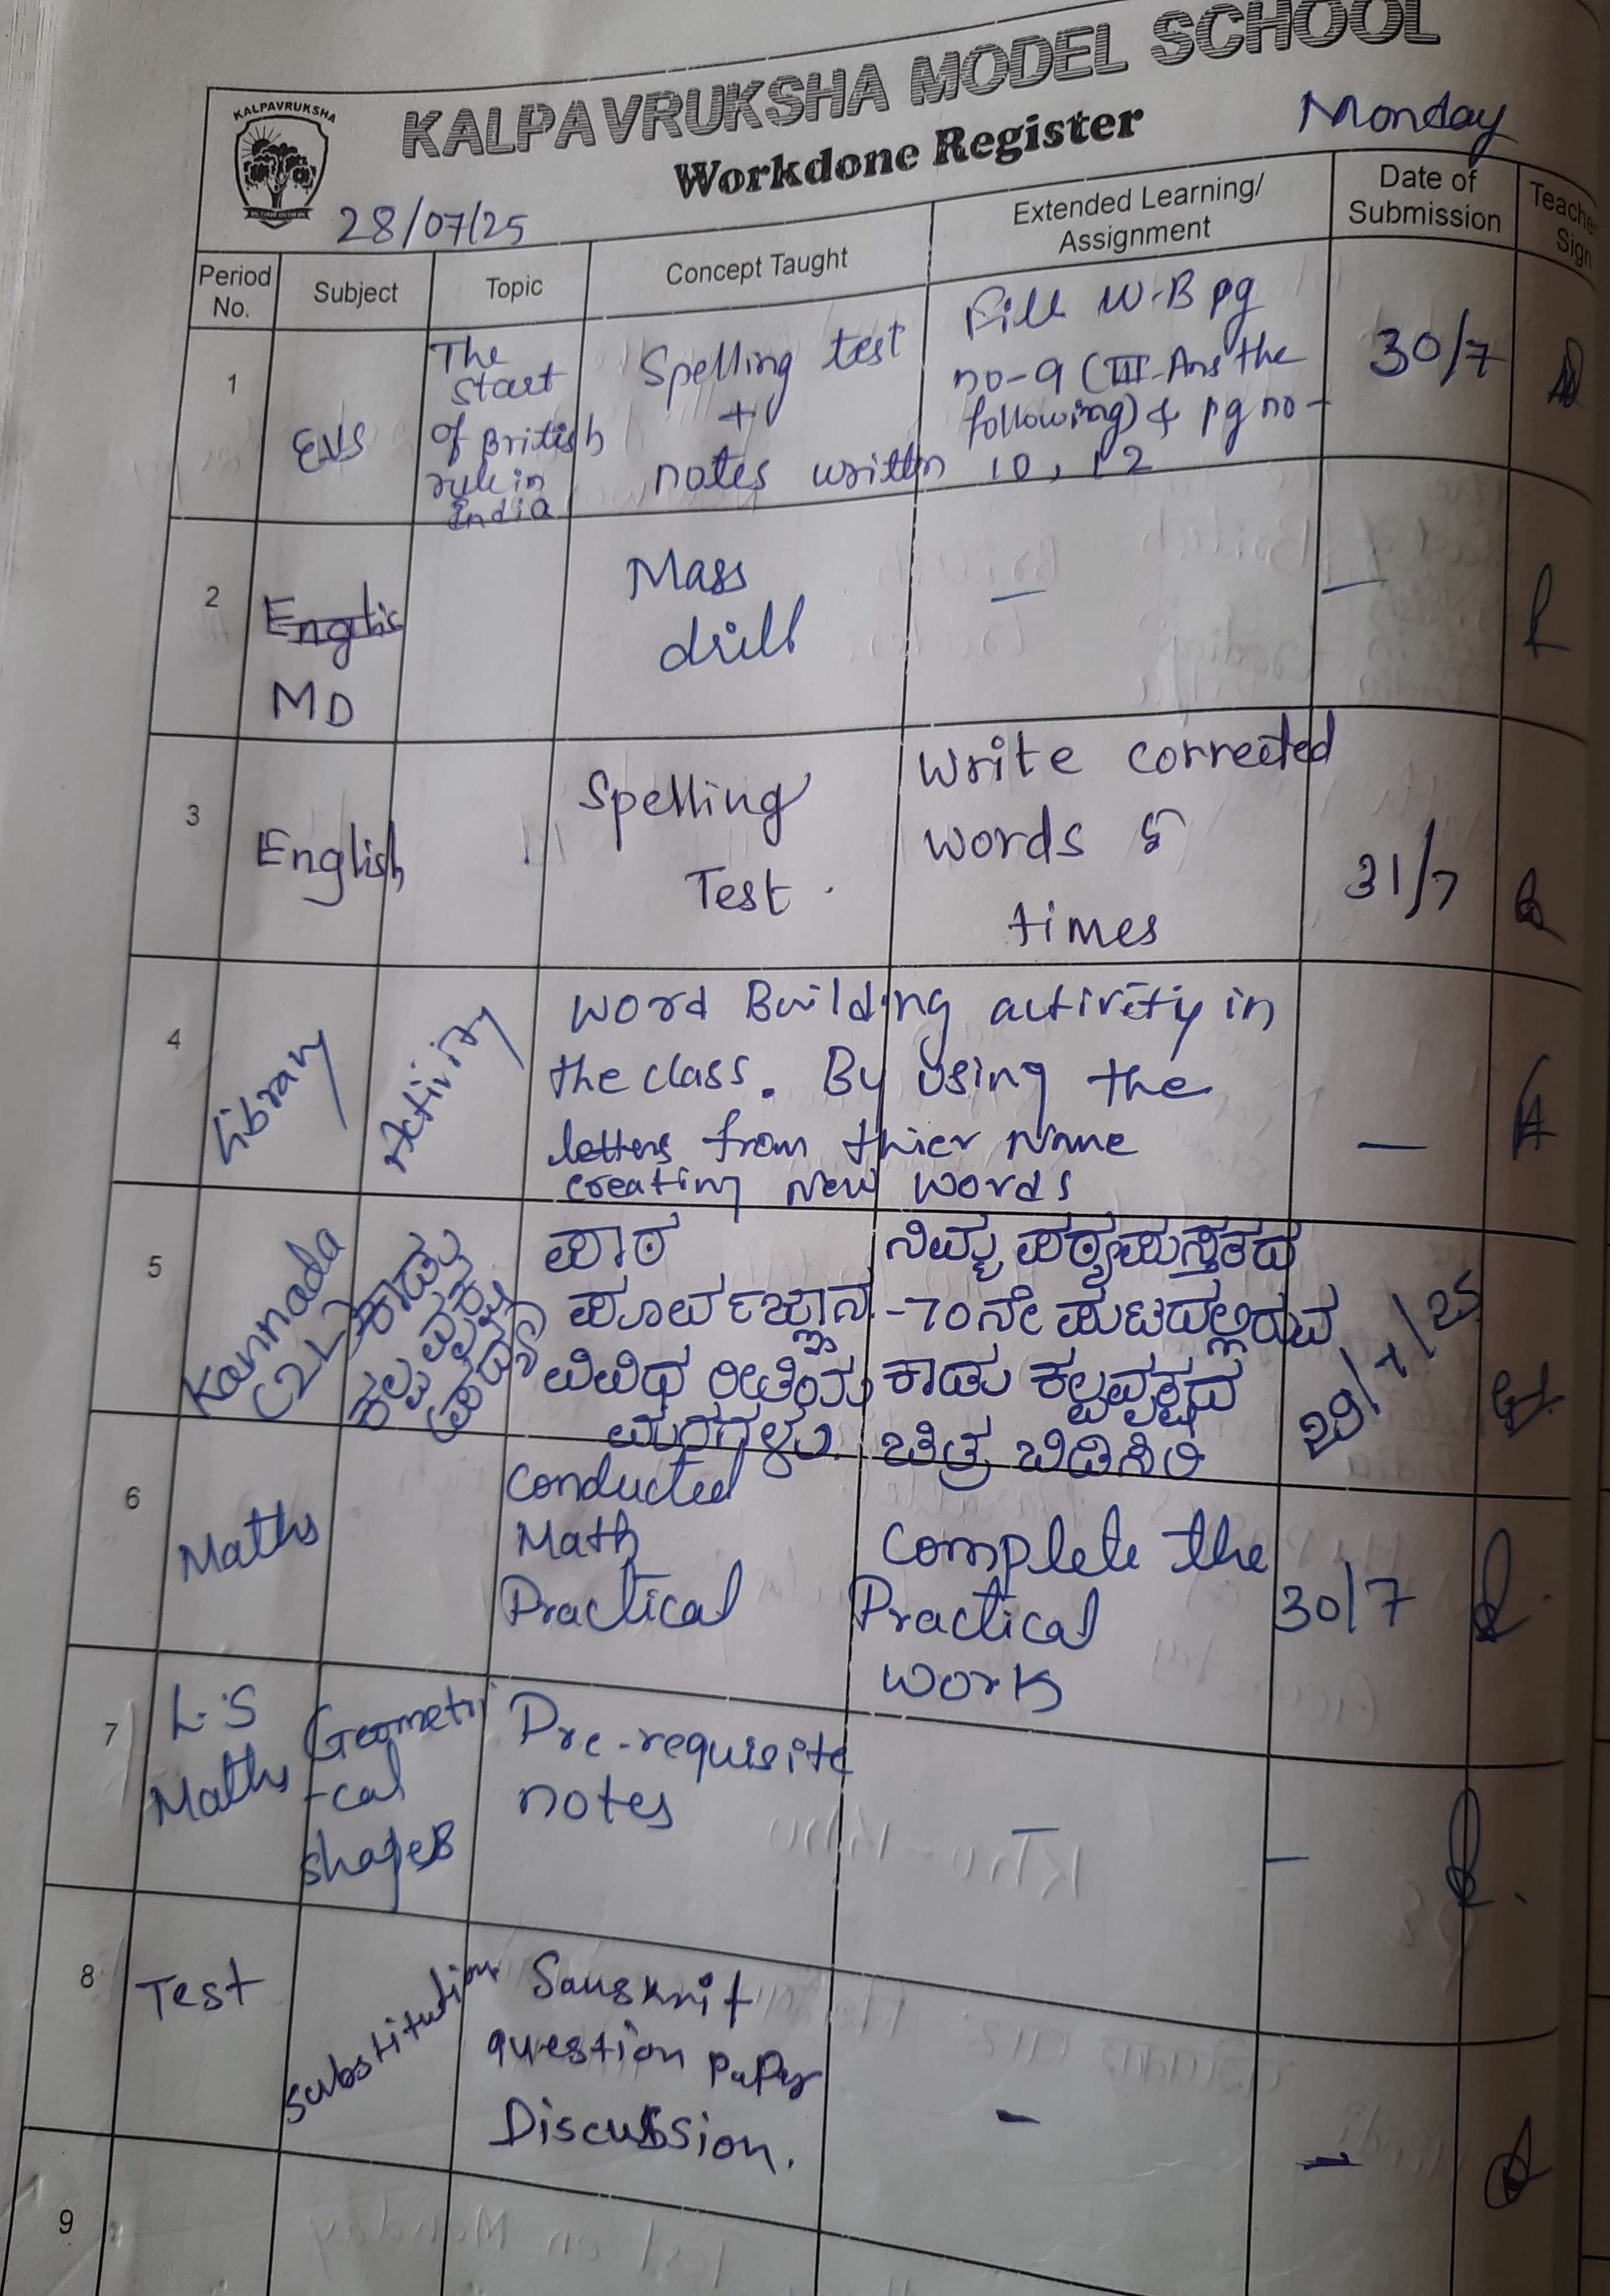 KALPAVRUKSHA
KALPAVRUKSHA MODEL SCHOOL
Workdone Register
Monday
28/07/25
Period No.
Subject
Topic
Concept Taught
Extended Learning/
Assignment
Date of
Submission
Teacher
Sign
1
EVS
The
start
of British
rule in
India
Spelling test
+
notes written
Fill W-B pg
no-9 (III-Ans the
following) & pg no-
10, 12
30/7
2
Englis
MD
Mass
drill
—
—
3
English
Spelling
Test.
Write corrected
words 5
times
31/7
4
Library
Activity
Word Building activity in
the class. By using the
letters from thier Name
creating New words
—
5
Kannada
(2L)
ಕಾಡು
ಕಲ್ಪವೃಕ್ಷ
(ಪದ್ಯ)
ಪಾಠ
ಪೂರ್ವಜ್ಞಾನ
ವಿವಿಧ ರೀತಿಯ
ಮರಗಳು
ನಿಮ್ಮ ಪಠ್ಯಪುಸ್ತಕದ
-70ನೇ ಪುಟದಲ್ಲಿರುವ
ಕಾಡು ಕಲ್ಪವೃಕ್ಷದ
ಚಿತ್ರ ಬಿಡಿಸಿರಿ
29/7/25
6
Maths
Conducted
Math
Practical
Complete the
Practical
work
30/7
7
L.S
Maths
Geometri
-cal
shapes
Pre-requisite
notes
—
—
8
Test
Substitution
Sanskrit
question paper
Discussion.
-
-
9